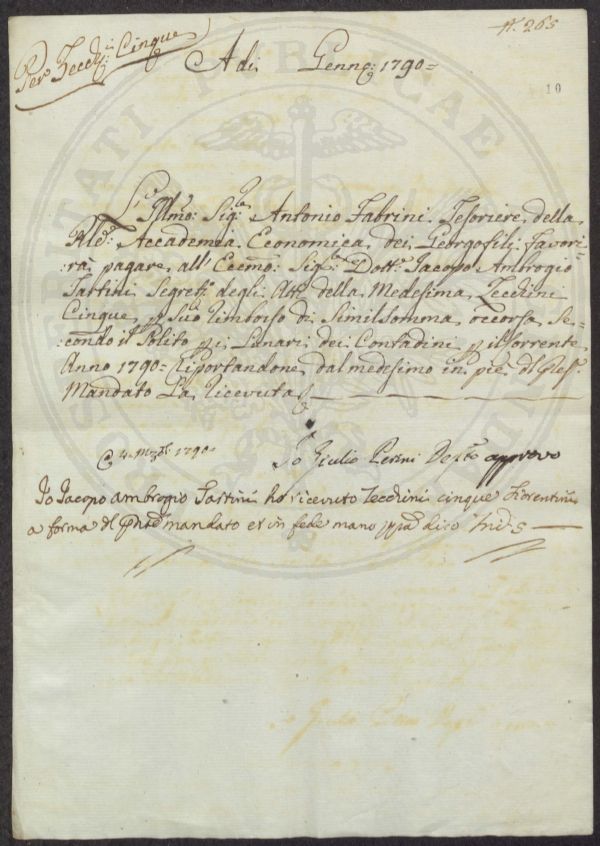 N. 265
Per Zecch:ni Cinque
Adi Genn:o 1790=
10
L'Illmo: Sig:re Antonio Fabrini Tesoriere della
Rle: Accademia Economica dei Georgofili favori
rà pagare all' Eccmo: Sig:re Dott:e Jacopo Ambrogio
Tartini Segret:o degli Atti della Medesima Zecchini
Cinque p Suo rimborso di Simil somma occorsa Se-
condo il Solito p i Lunari dei Contadini p il corrente
Anno 1790= riportandone dal medesimo in piè del pres:te
Mandato La Ricevuta
1790= Io Giulio Perini approvo
Io Jacopo Ambrogio Tartini ho ricevuto Zecchini cinque fiorentini
a forma del mandato et in fede mano ppa dico 5
SOCIETATIS PUBLICAE